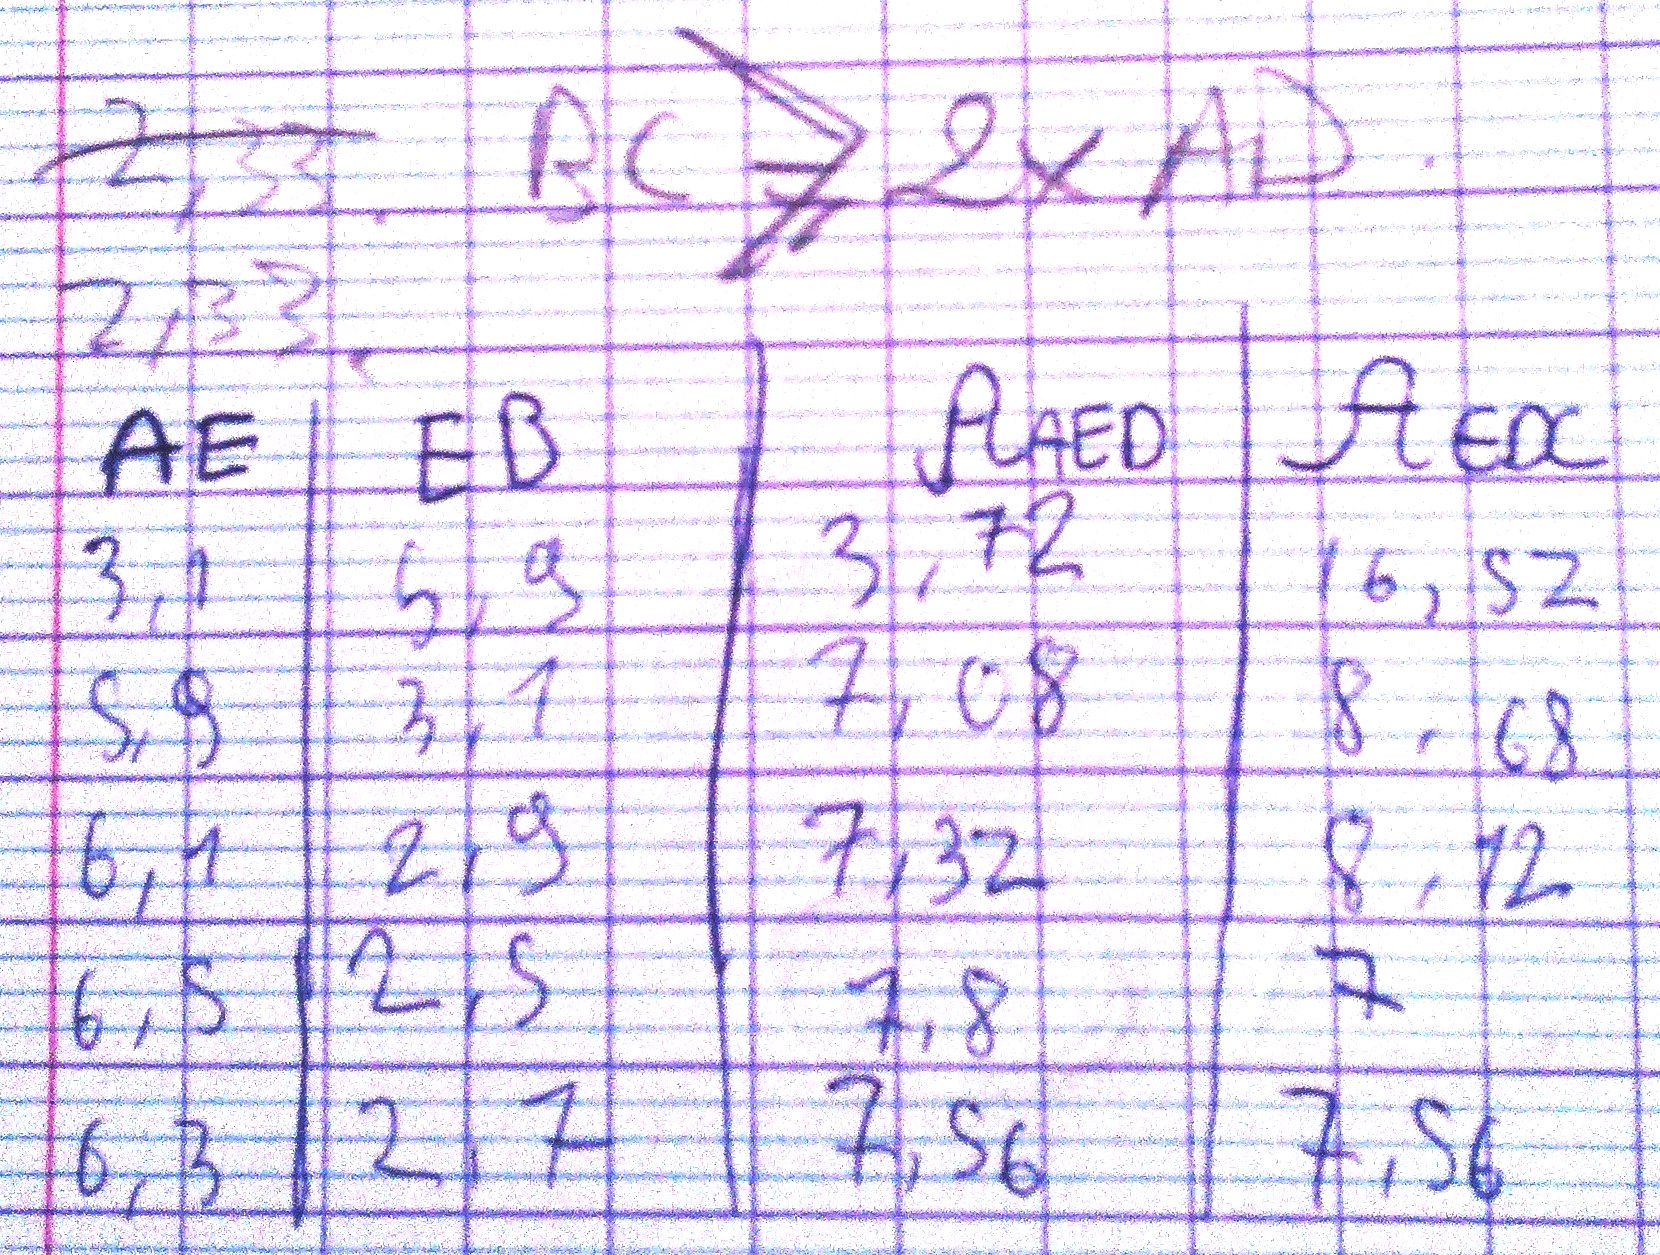 2,33. BC > 2 x AD.
2,33.
AE EB A AED A EDC
3,1 5,9 3,72 16,52
5,9 3,1 7,08 8,68
6,1 2,9 7,32 8,12
6,5 2,5 7,8 7
6,3 2,7 7,56 7,56